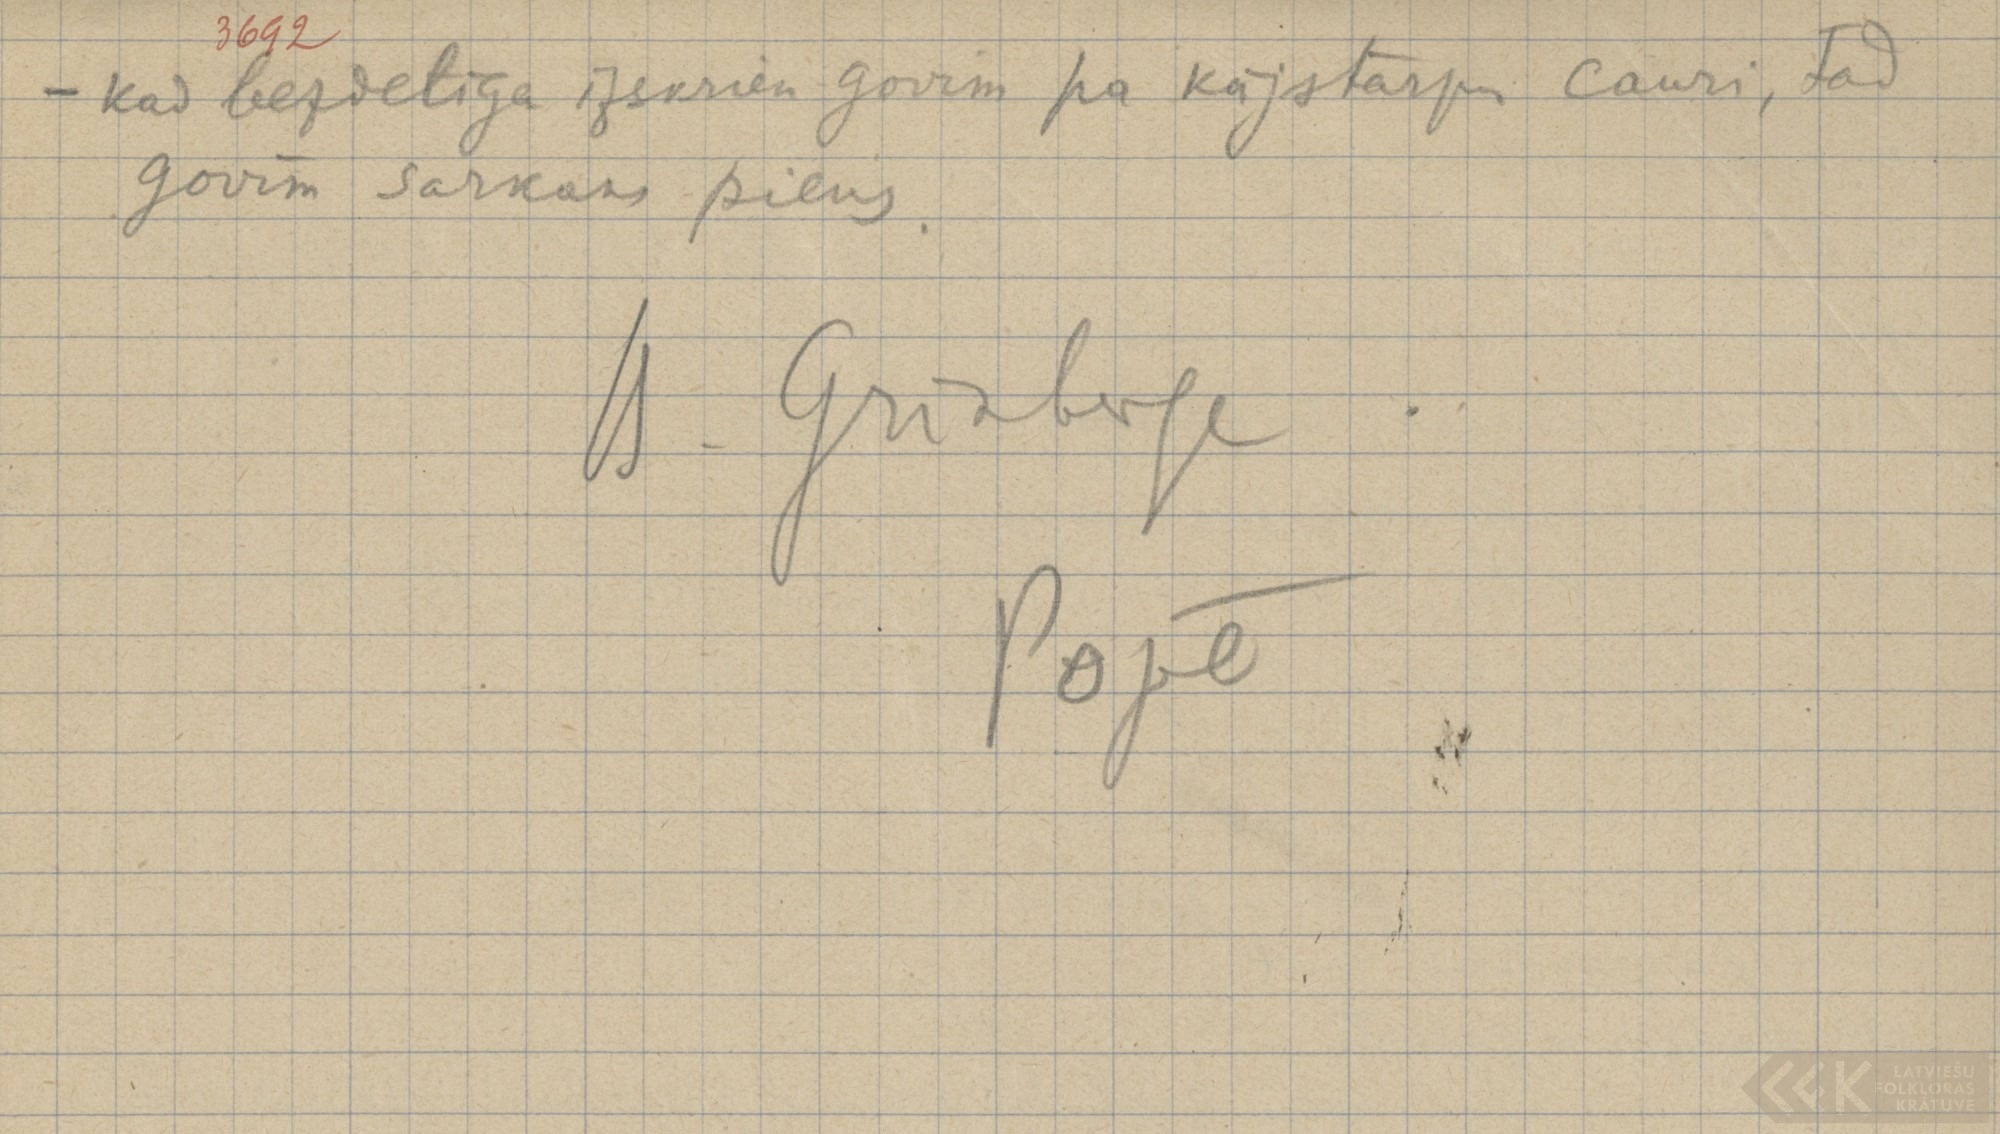 3692
- kad bezdelīga izskrien govīm pa kājstarpu cauri, tad
govīm sarkans piens.
A. Grīnberge
Popē
LATVIEŠU
FOLKLORAS
KRĀTUVE